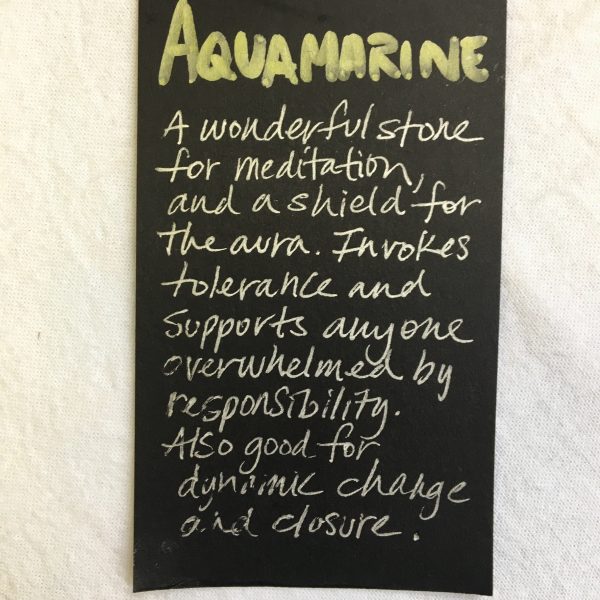 AQUAMARINE
A wonderful stone
for meditation,
and a shield for
the aura. Invokes
tolerance and
Supports anyone
overwhelmed by
responsibility.
Also good for
dynamic change
and closure.